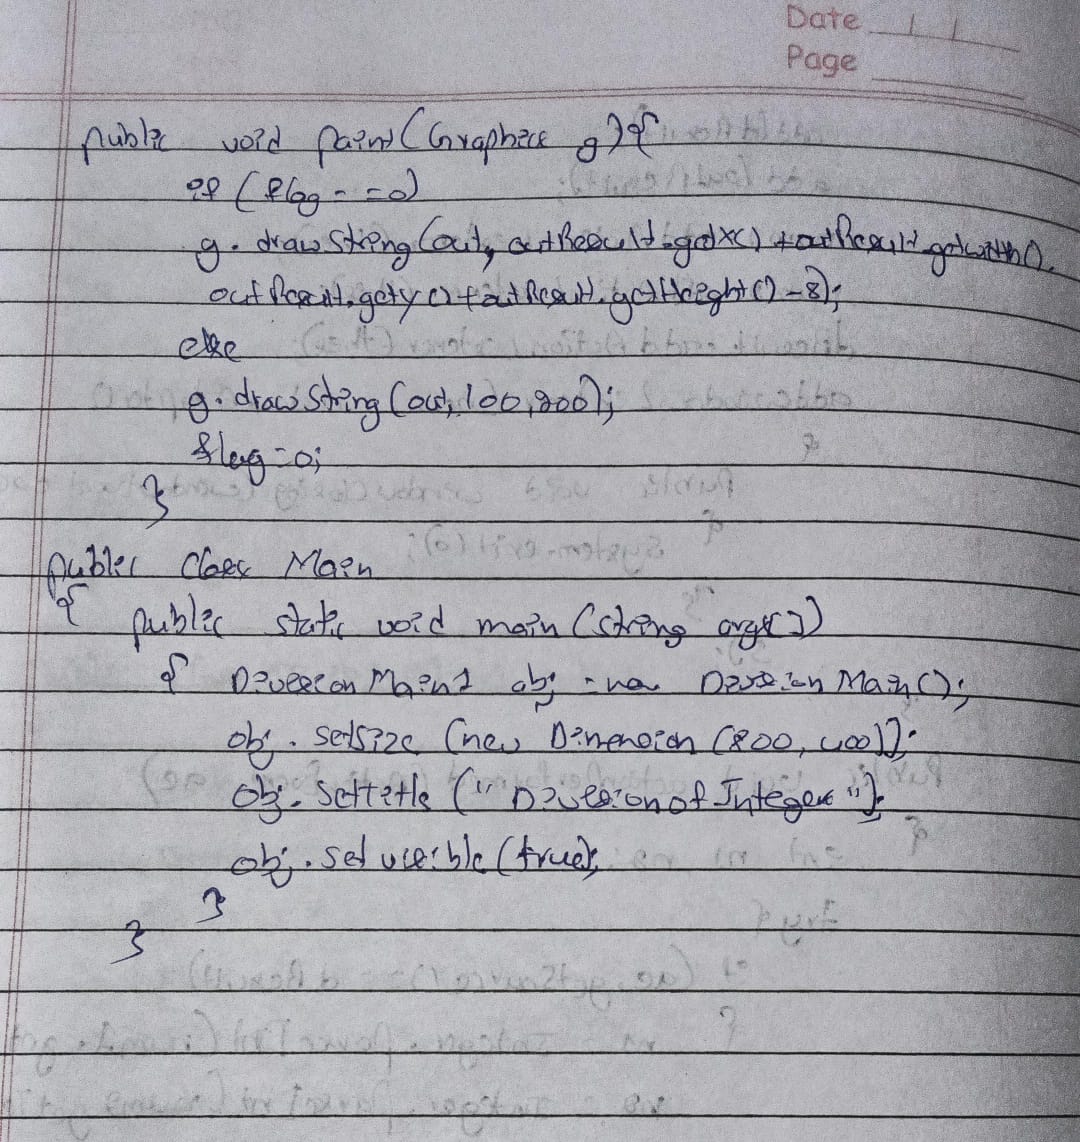 Date
Page
public void paint(Graphics g){
if (flag==0)
g.drawString(out, outResult.getX()+outResult.getwidth(),
outResult.gety()+outResult.getHeight()-8);
else
g.drawString(out,100,200);
flag=0;
}
public class Main
{
public static void main(String args[])
{ DivisionMain1 obj = new DivisionMain();
obj.setsize(new Dimension(800,400));
obj.settitle("Division of Integers");
obj.set visible(true);
}
}